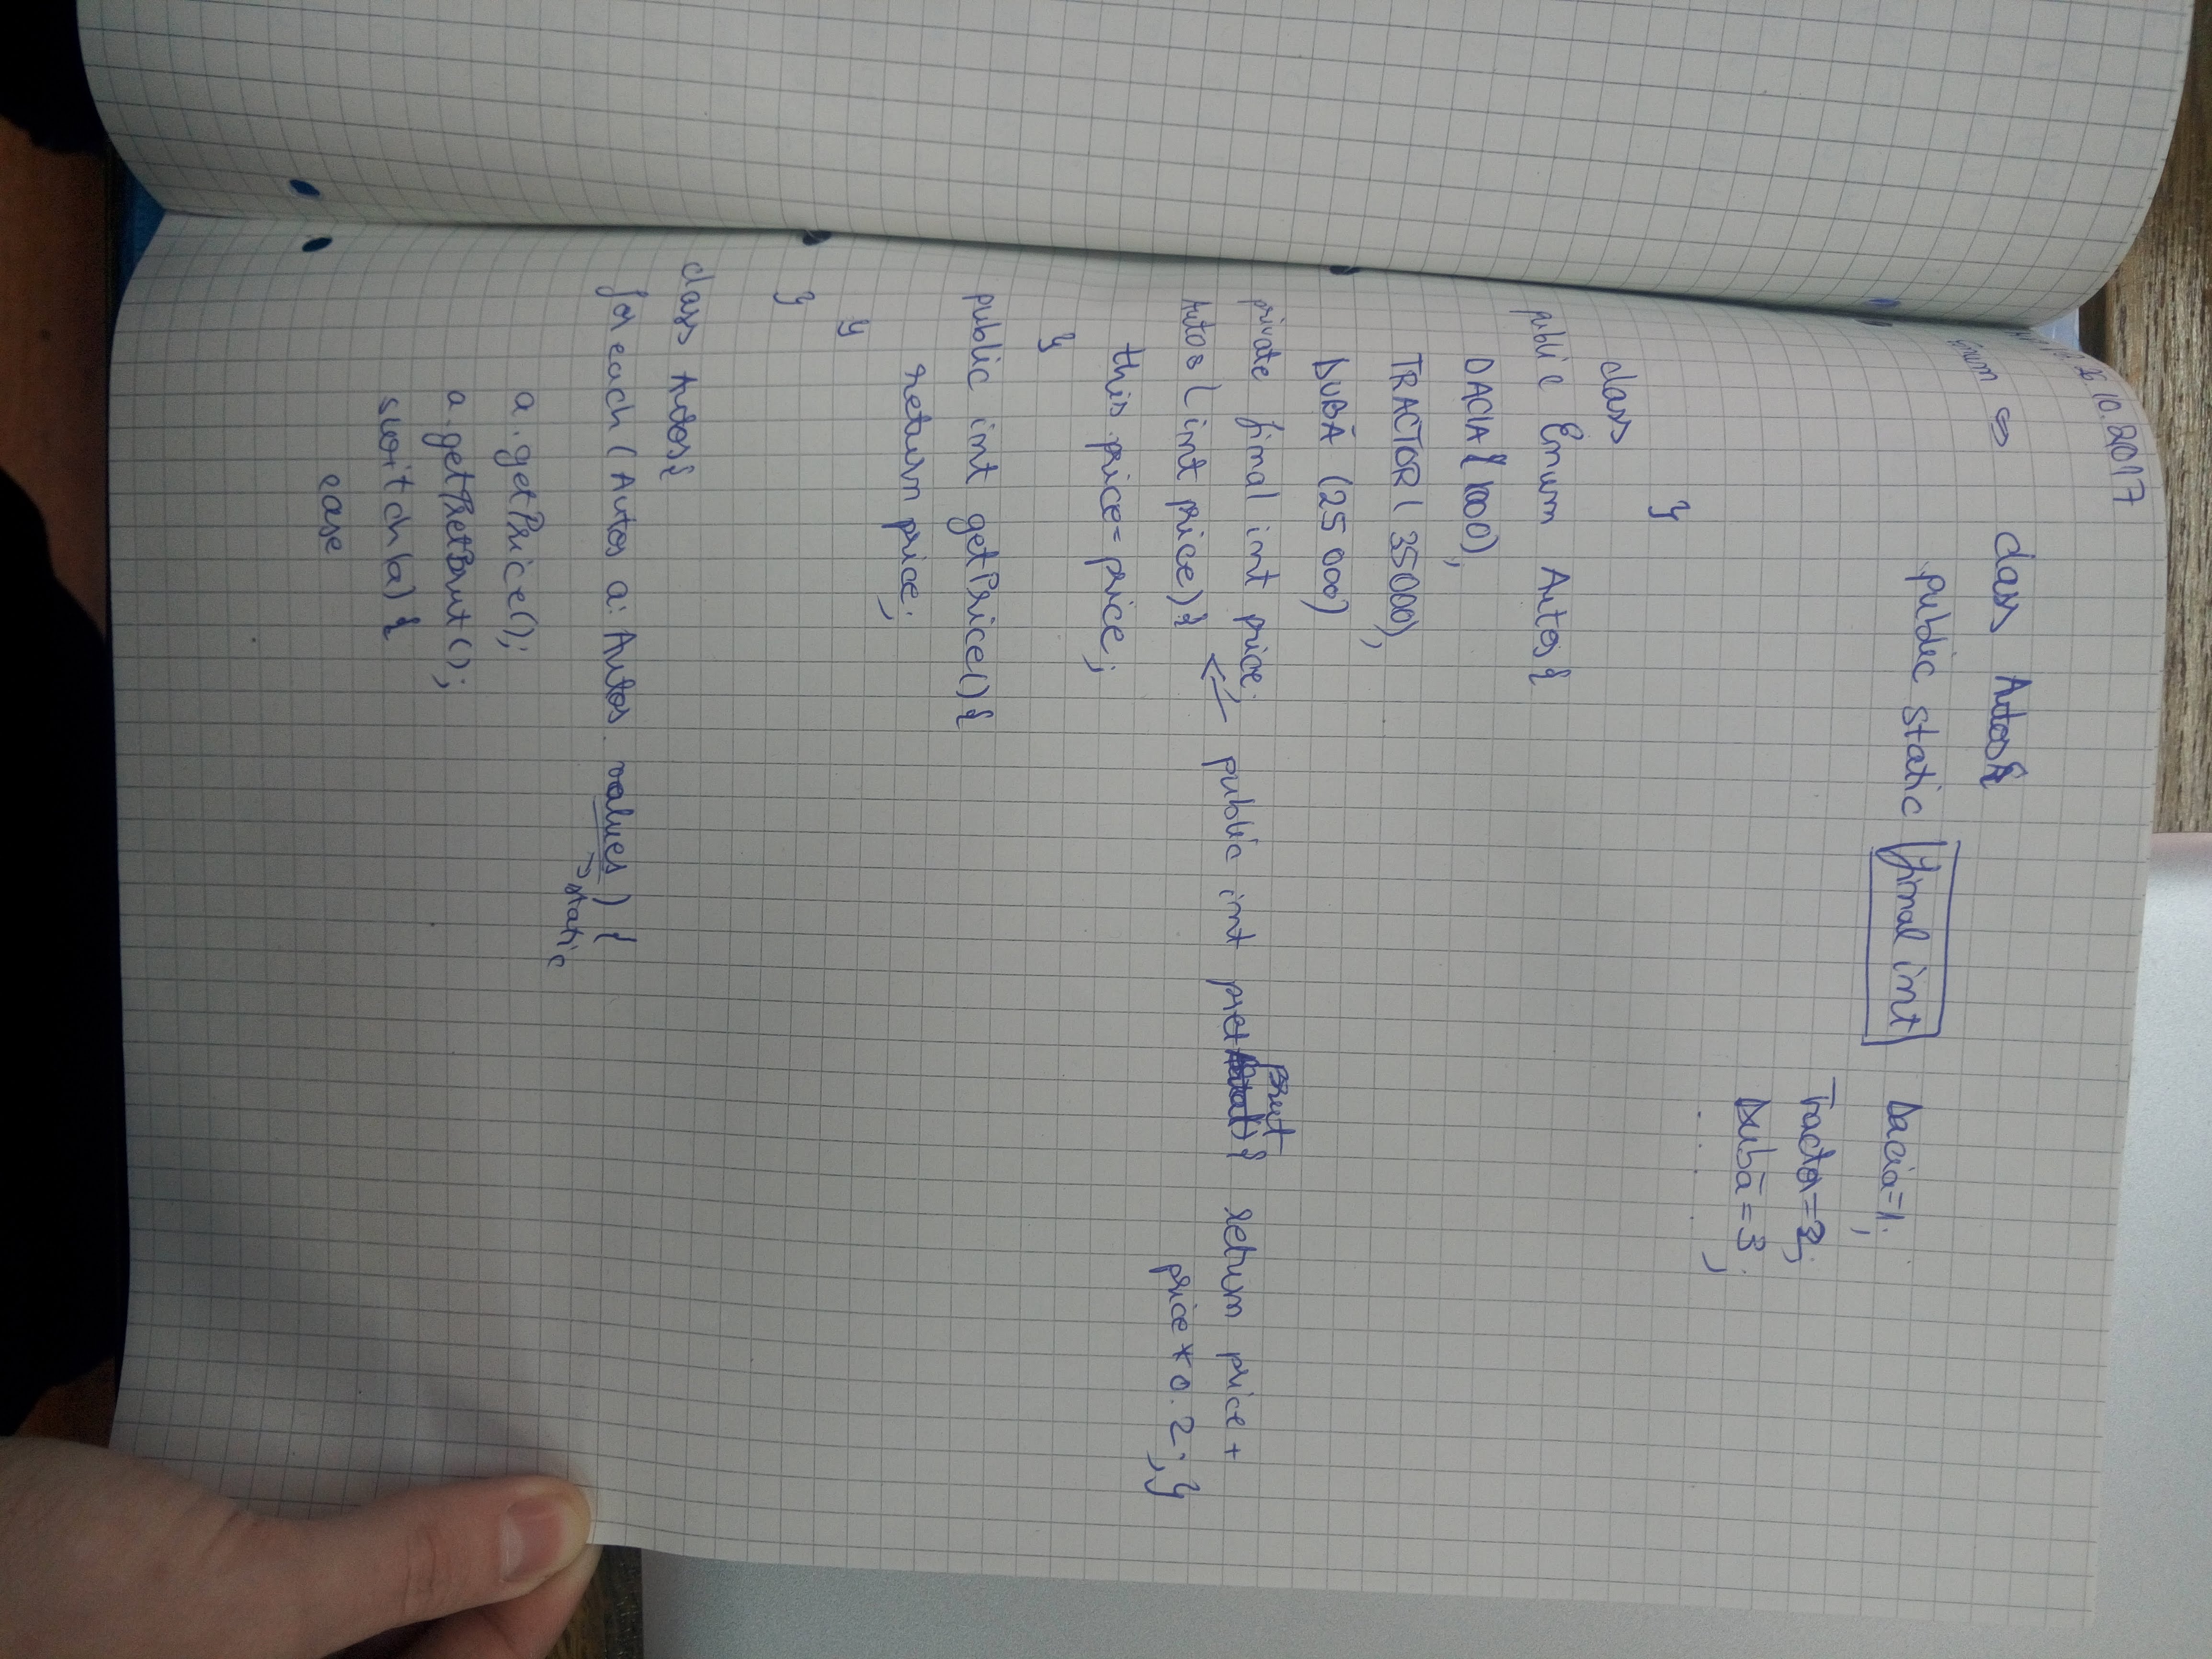 26.10.2017
Enum ⇔ class Autos{
public static final int Dacia=1;
Tractor=2;
Dubă=3;
....
}
class
public Enum Autos{
DACIA(1000),
TRACTOR(35000),
DUBĂ (25 000)
private final int price;
public int pretBrut{ return price +
price * 0.2;}
Autos(int price){
this.price=price;
}
public int getPrice(){
return price;
}
}
class Autos{
foreach(Autos a: Autos.values){
→static
a.getPrice();
a.getPretBrut();
switch(a){
case